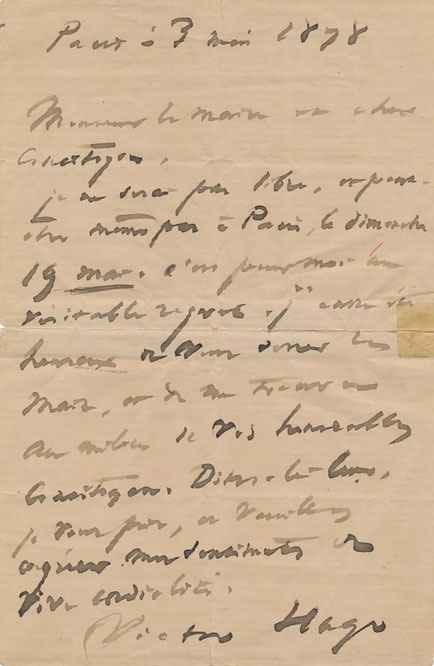 Paris 3 mai 1878
Monsieur le maire et cher
Concitoyen,
je ne serai pas libre, et peut-
être même pas à Paris, le dimanche
19 mai. c'est pour moi un
véritable regret. j'eusse été
heureux de vous serrer la
main, et de me trouver
au milieu de vos honorables
Concitoyens. Dites-le leur,
je vous prie, et veuillez
agréer mes sentiments de
vive cordialité.
Victor Hugo